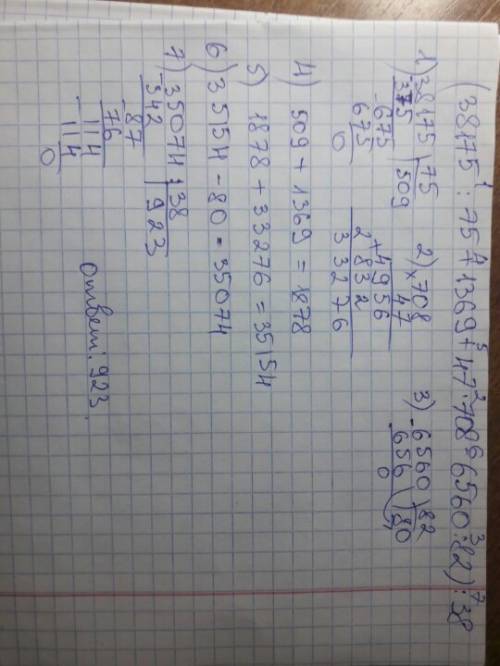 (38175 : 75 + 1369 + 47 · 708 - 6560 : 82) : 38
1) 38175 | 75
375 | 509
- 675
675
0
2) × 708
47
+ 4956
2832
33276
3) - 6560 | 82
656 | 80
0
4) 509 + 1369 = 1878
5) 1878 + 33276 = 35154
6) 35154 - 80 = 35074
7) 35074 : 38
- 342 | 923
- 87
76
- 114
114
0
Ответ: 923.